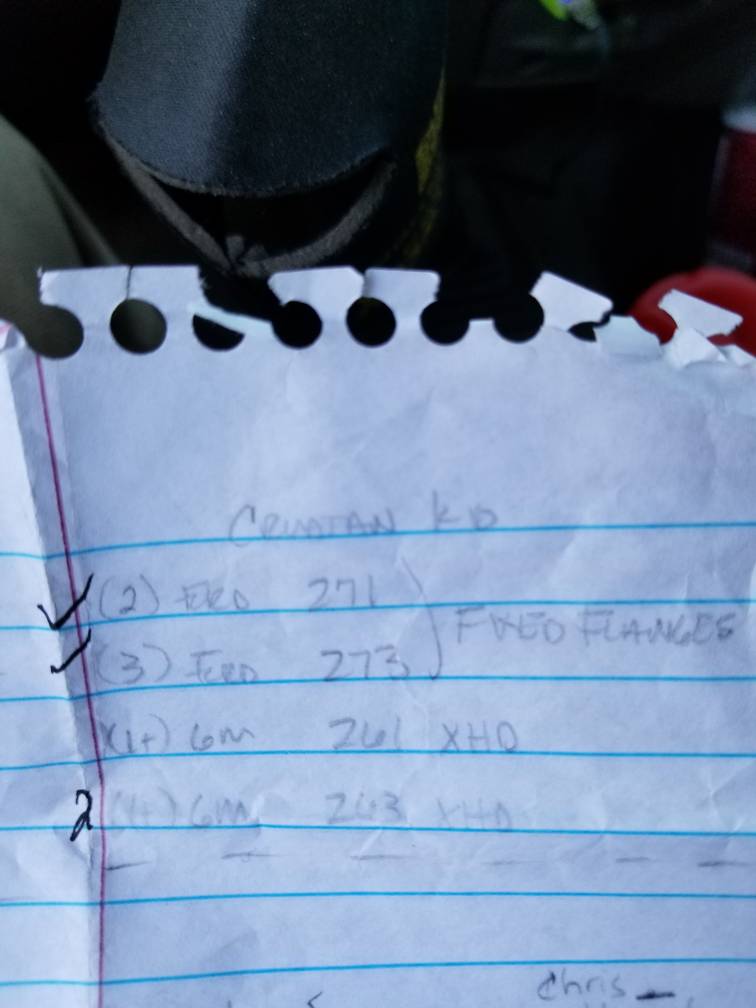 (2) FORD 271
(3) FORD 273 FIXED FLANGES
(1+) GM 261 XHD
2 (1+) GM 263 XHD
Chris